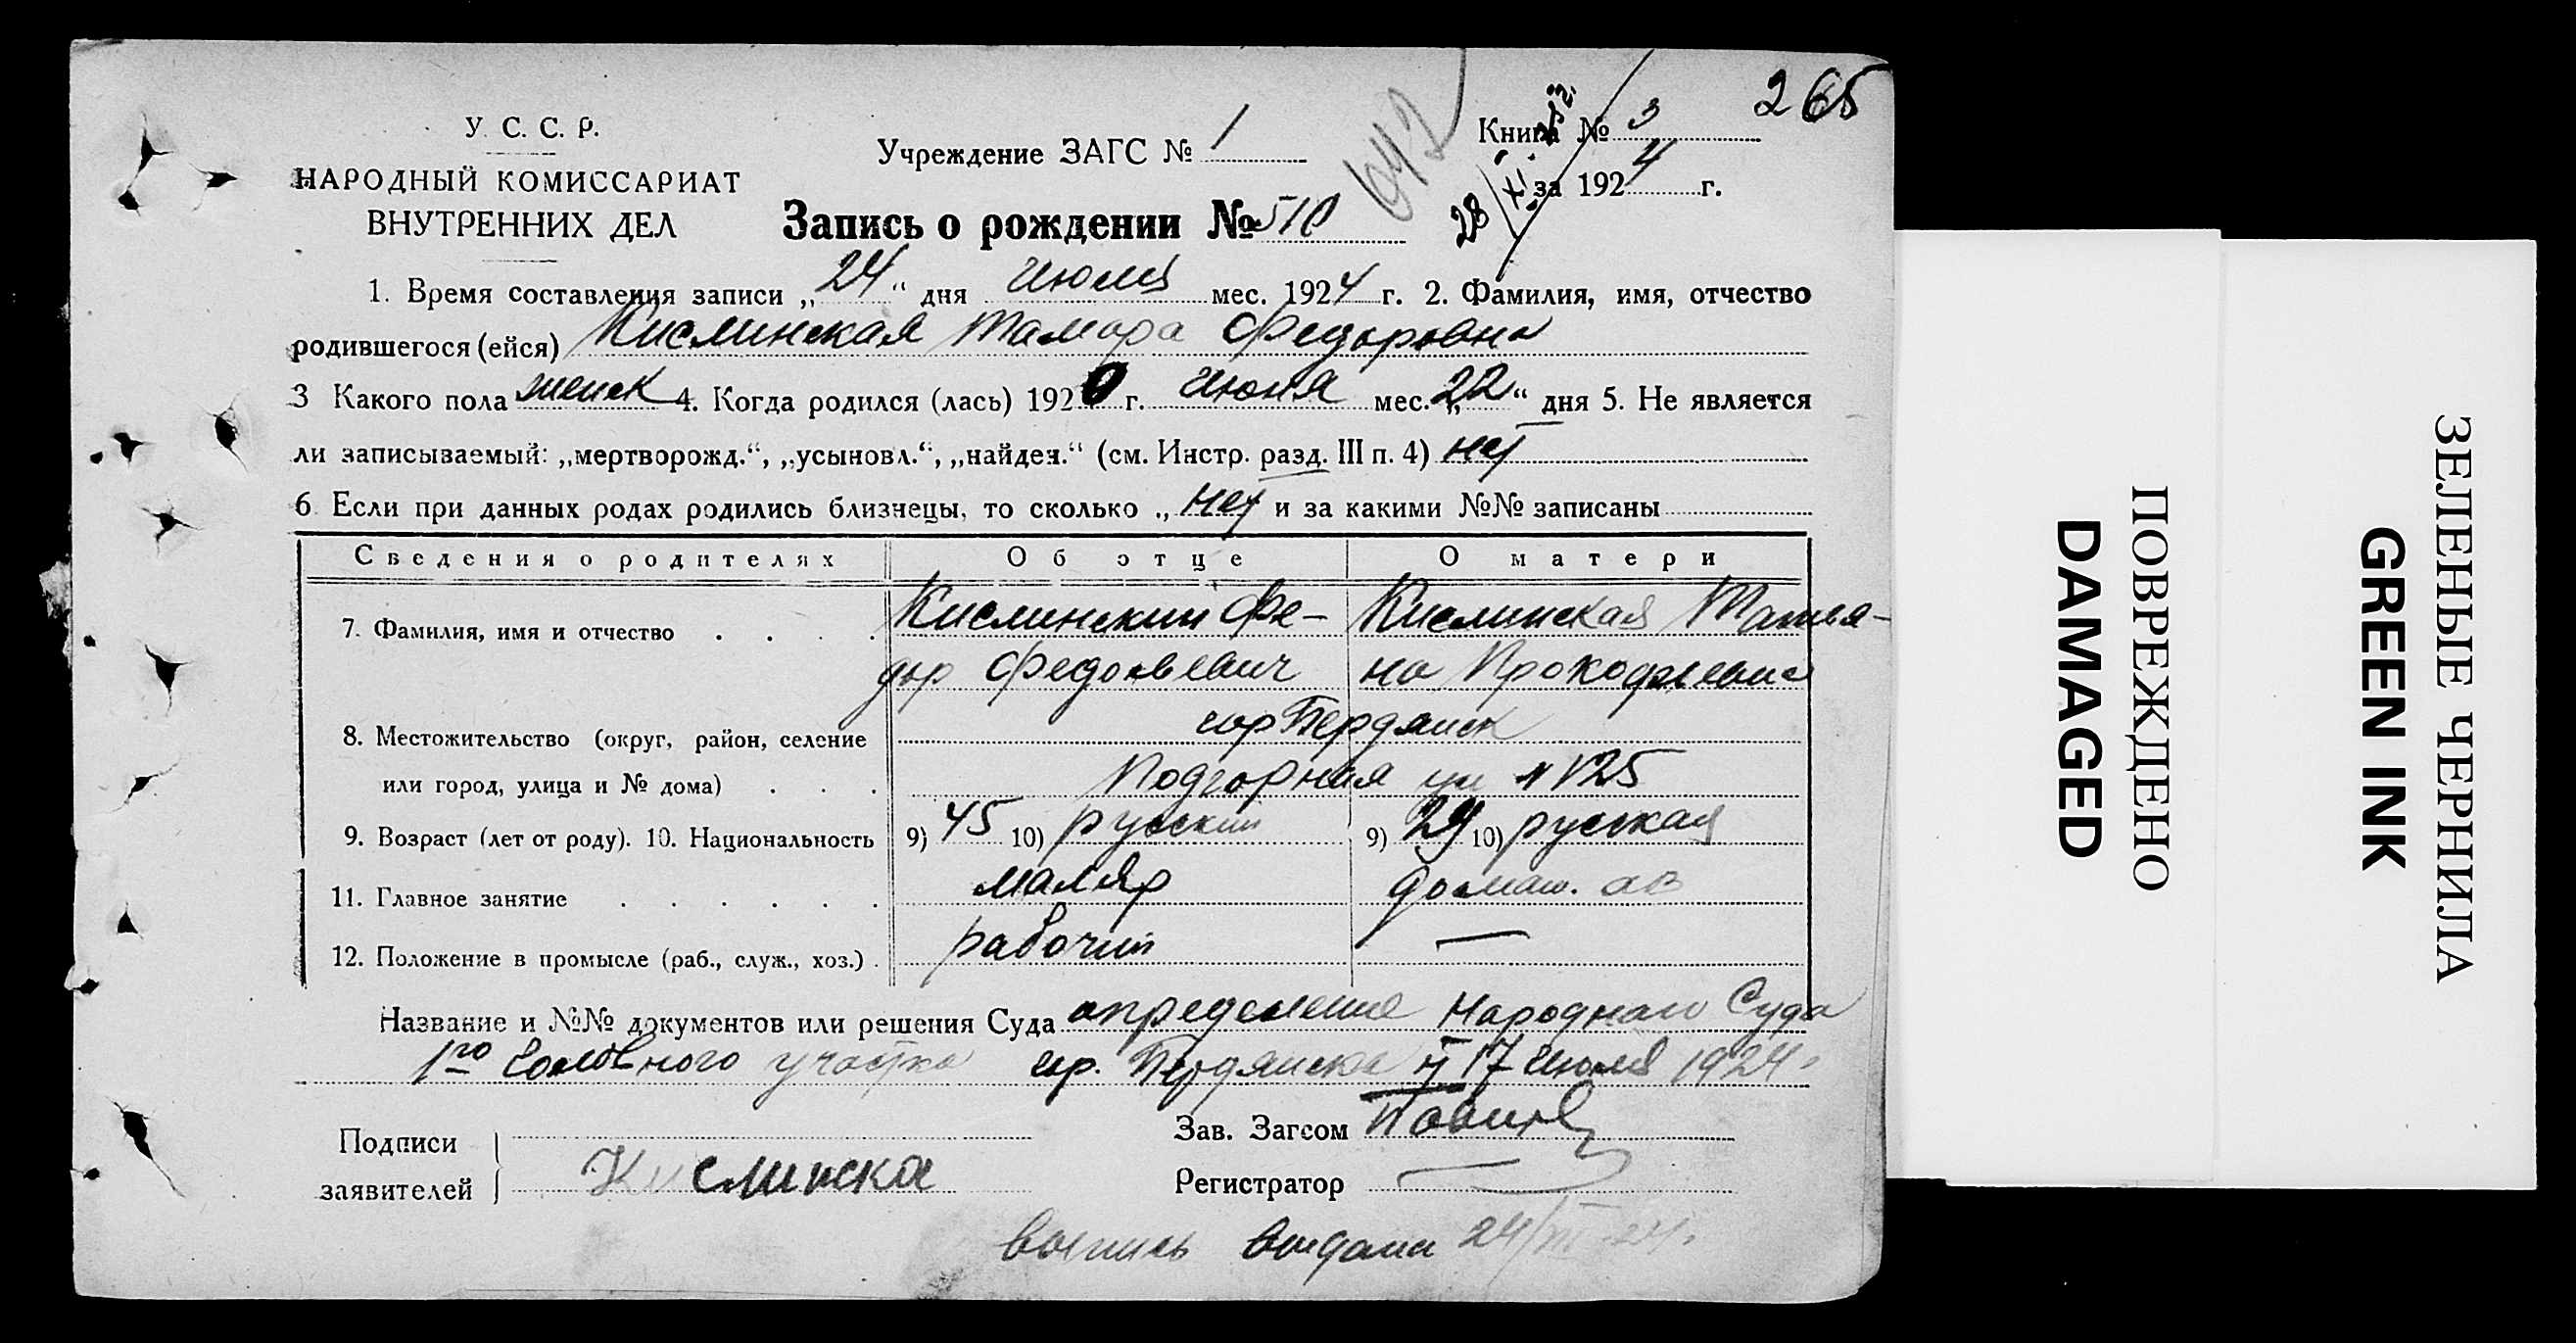 265
У. С. С. Р.
НАРОДНЫЙ КОМИССАРИАТ
ВНУТРЕННИХ ДЕЛ
Учреждение ЗАГС № 1
642
Книга № 3
за 1924 г.
28/XI
Запись о рождении № 510
1. Время составления записи „24“ дня июля мес. 1924 г. 2. Фамилия, имя, отчество
родившегося (ейся) Кислинская Тамара Федоровна
3 Какого пола женск 4. Когда родился (лась) 1920 г. июня мес. „22“ дня 5. Не является
ли записываемый: „мертворожд.“, „усыновл.“, „найден.“ (см. Инстр. разд. III п. 4) нет
6 Если при данных родах родились близнецы, то сколько „нет и за какими №№ записаны
Сведения о родителях Об отце О матери
7. Фамилия, имя и отчество Кислинский Фе- Кислинская Татья-
дор Федосьевич на Прокофьевна
8. Местожительство (округ, район, селение гор Бердянск
или город, улица и № дома) Подгорная ул № 125
9. Возраст (лет от роду). 10. Национальность 9) 45 10) русский 9) 29 10) русская
11. Главное занятие маляр домаш.
12. Положение в промысле (раб., служ., хоз.) рабочий —
Название и №№ документов или решения Суда определение Народного Суда
1го участка гор. Бердянска 17 июля 1924
Подписи
заявителей Кислинска
Зав. Загсом
Регистратор
выпись выдана 24/VII 24.
ПОВРЕЖДЕНО
DAMAGED
ЗЕЛЕНЫЕ ЧЕРНИЛА
GREEN INK